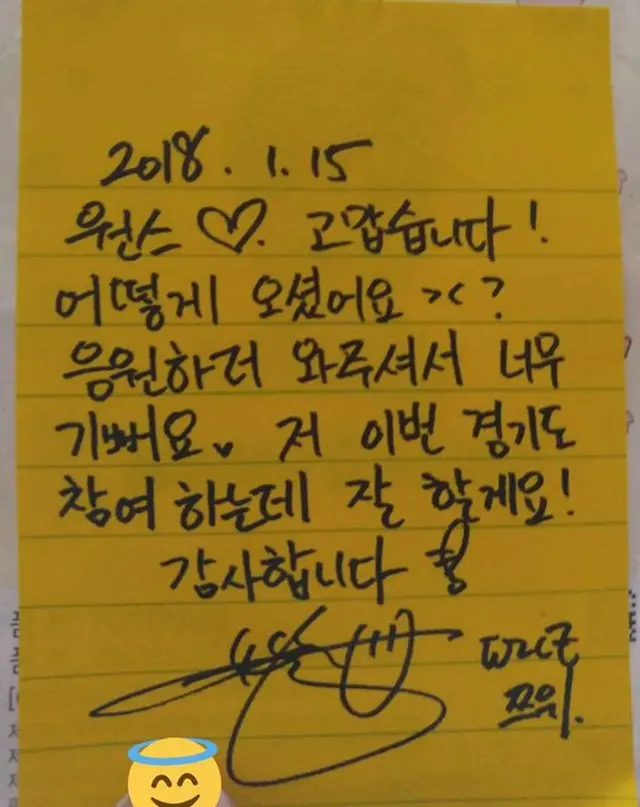 2018. 1. 15
원스 ♡. 고맙습니다!
어떻게 오셨어요 ><?
응원하러 와주셔서 너무
기뻐요♥ 저 이번 경기도
참여 하는데 잘 할게요!
감사합니다
TWICE
쯔위.